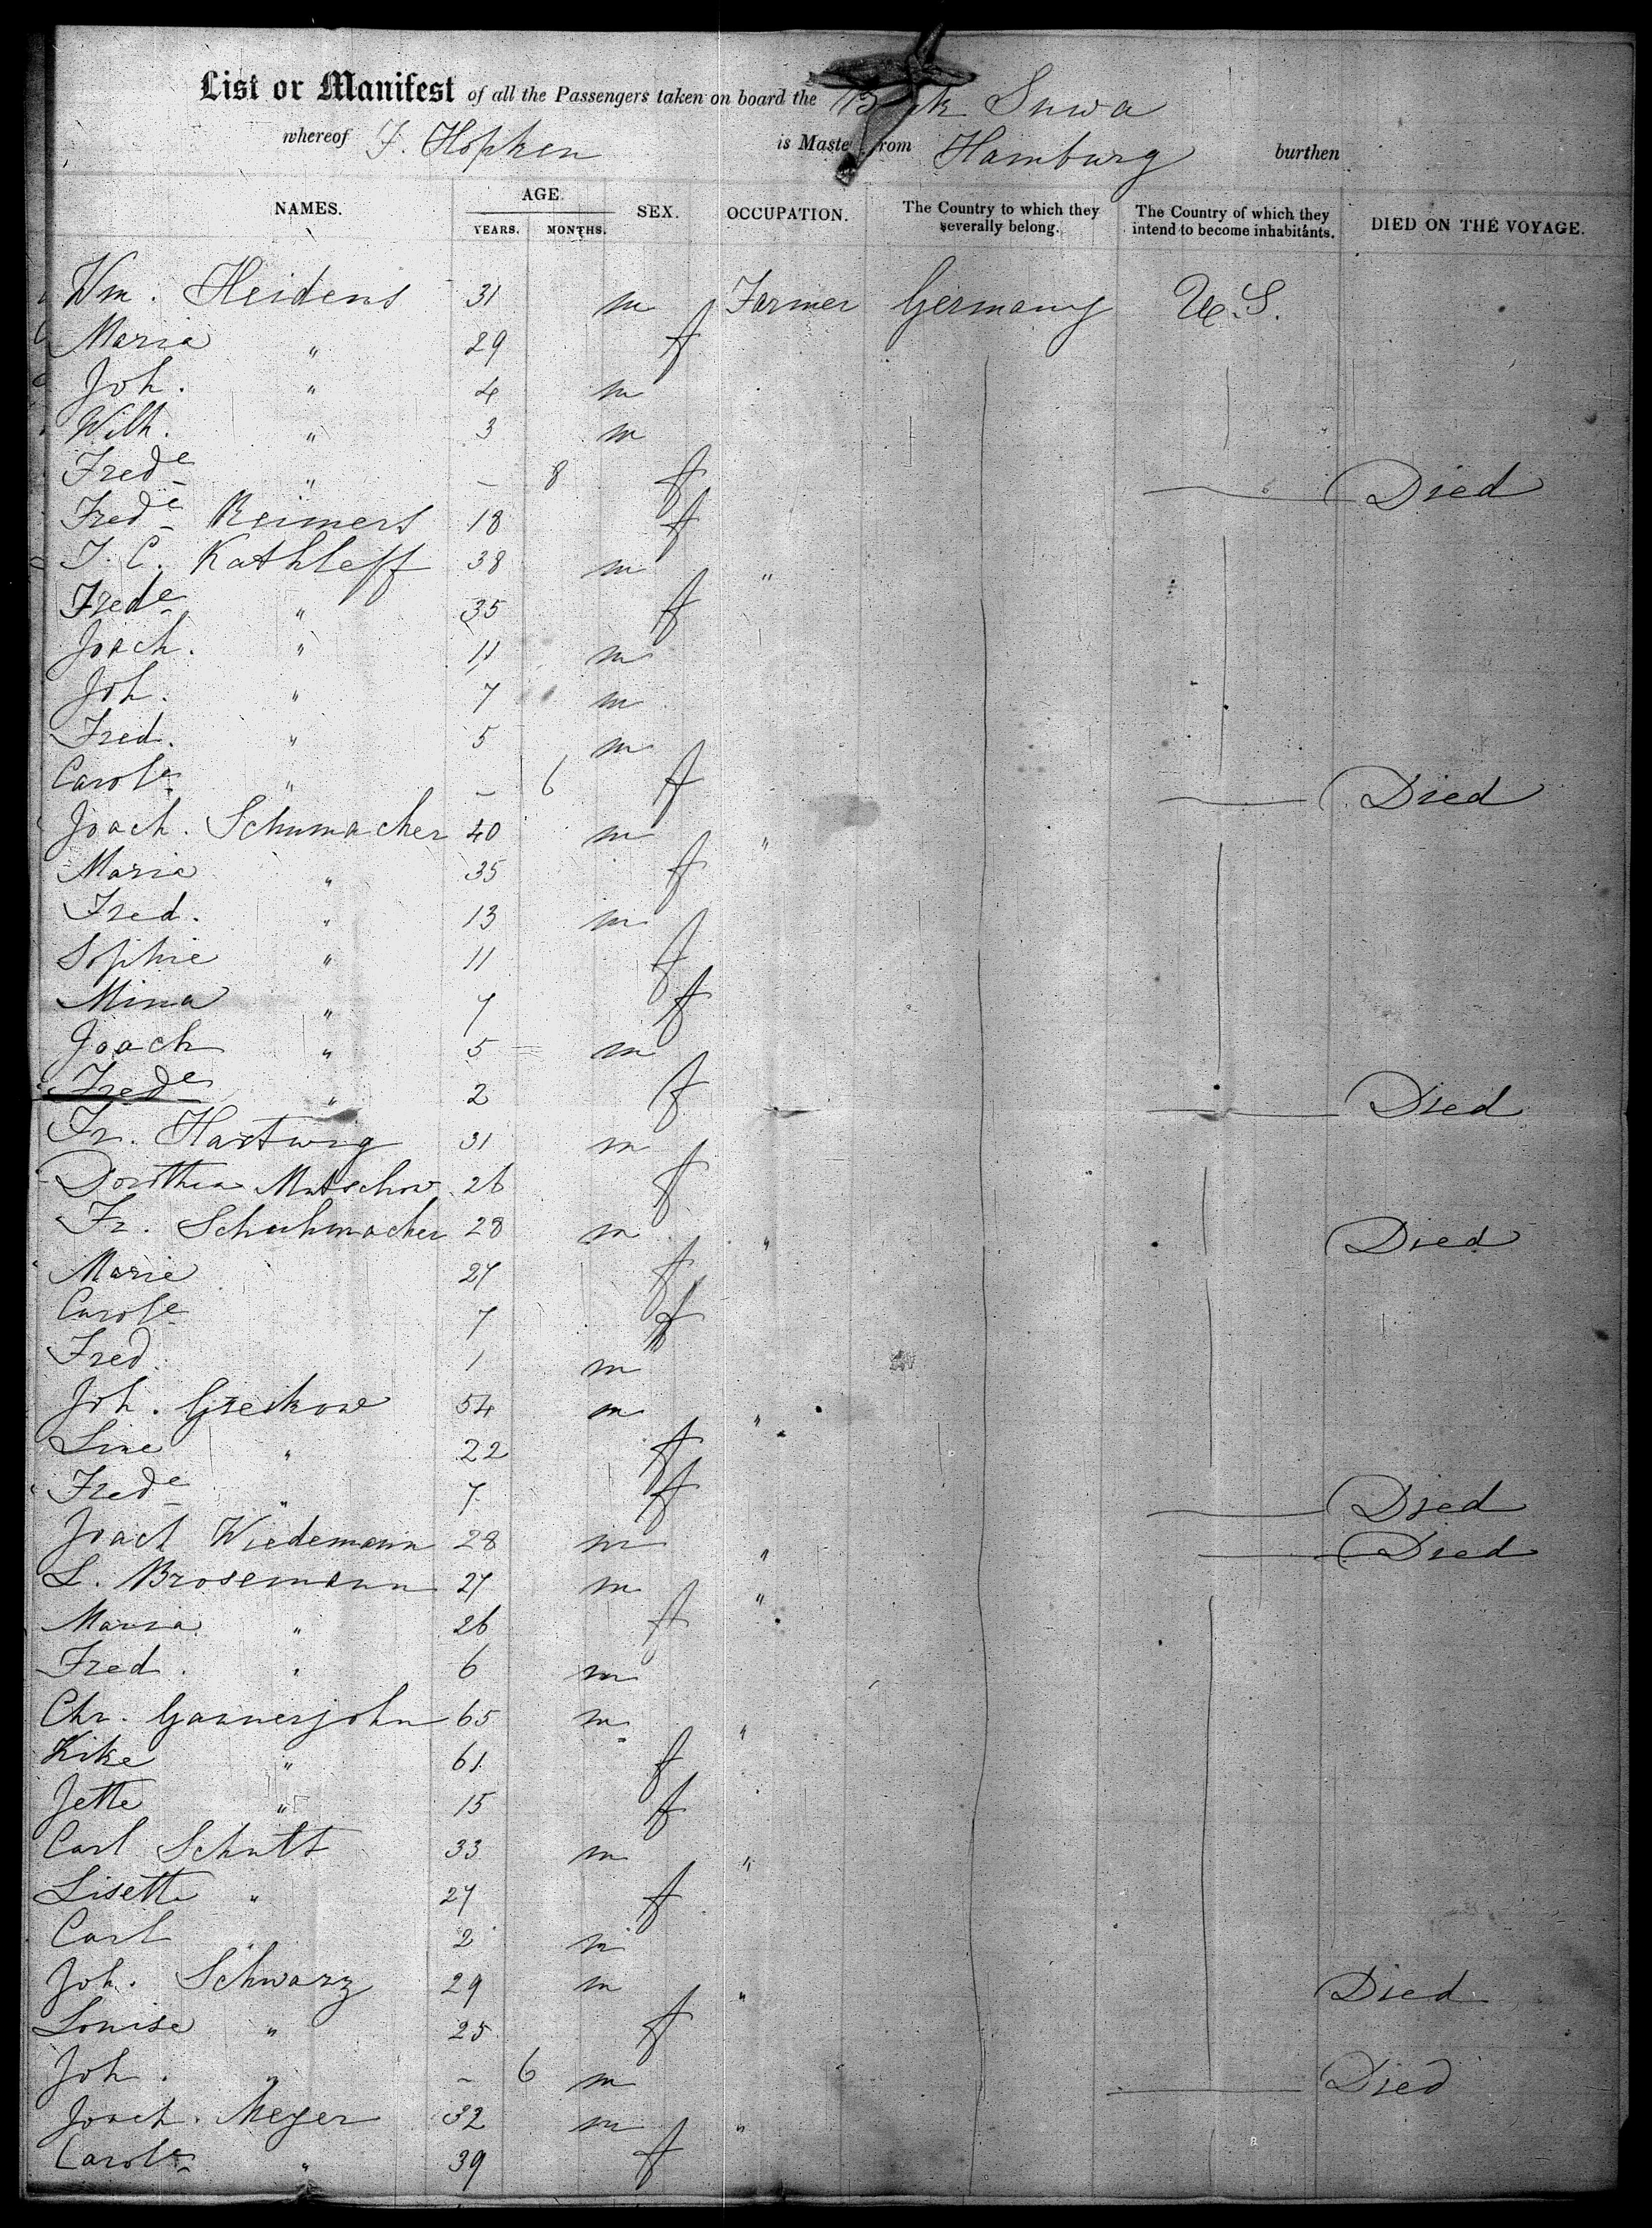 List or Manifest of all the Passengers taken on board the Bark Suwa
whereof J. Hopken is Master from Hamburg burthen
NAMES. AGE. YEARS. MONTHS. SEX. OCCUPATION. The Country to which they severally belong. The Country of which they intend to become inhabitants. DIED ON THE VOYAGE.
Wm. Heidens 31 m Farmer Germany U.S.
Maria " 29 f
Joh. " 4 m
Wilh. " 3 m
Frede " – 8 f Died
Frede Reimers 18 f
J. C. Kathleff 38 m "
Frede " 35 f
Joach. " 11 m
Joh. " 7 m
Fred. " 5 m
Carole " – 6 f Died
Joach. Schumacher 40 m "
Marie " 35 f
Fred. " 13 m
Sophie " 11 f
Mina " 7 f
Joach " 5 m
Frede " 2 f Died
Fr. Hartwig 31 m
Dorothea Mutschow 26 f
Fr. Schuhmacher 28 m " Died
Marie 27 f
Carole 7 f
Fred. 1 m
Joh. Greikow 54 m "
Line " 22 f
Frede " 7 f Died
Joach Wiedemann 28 m " Died
L. Brosemann 27 m "
Maria " 26 f
Fred. " 6 m
Chr. Gannerjohn 65 m "
Kike " 61 f
Jette " 15 f
Carl Schutt 33 m "
Lisette " 27 f
Carl " 2 m
Joh. Schwarz 29 m " Died
Louise " 25 f
Joh. " – 6 m Died
Joach. Meyer 32 m "
Carole " 39 f